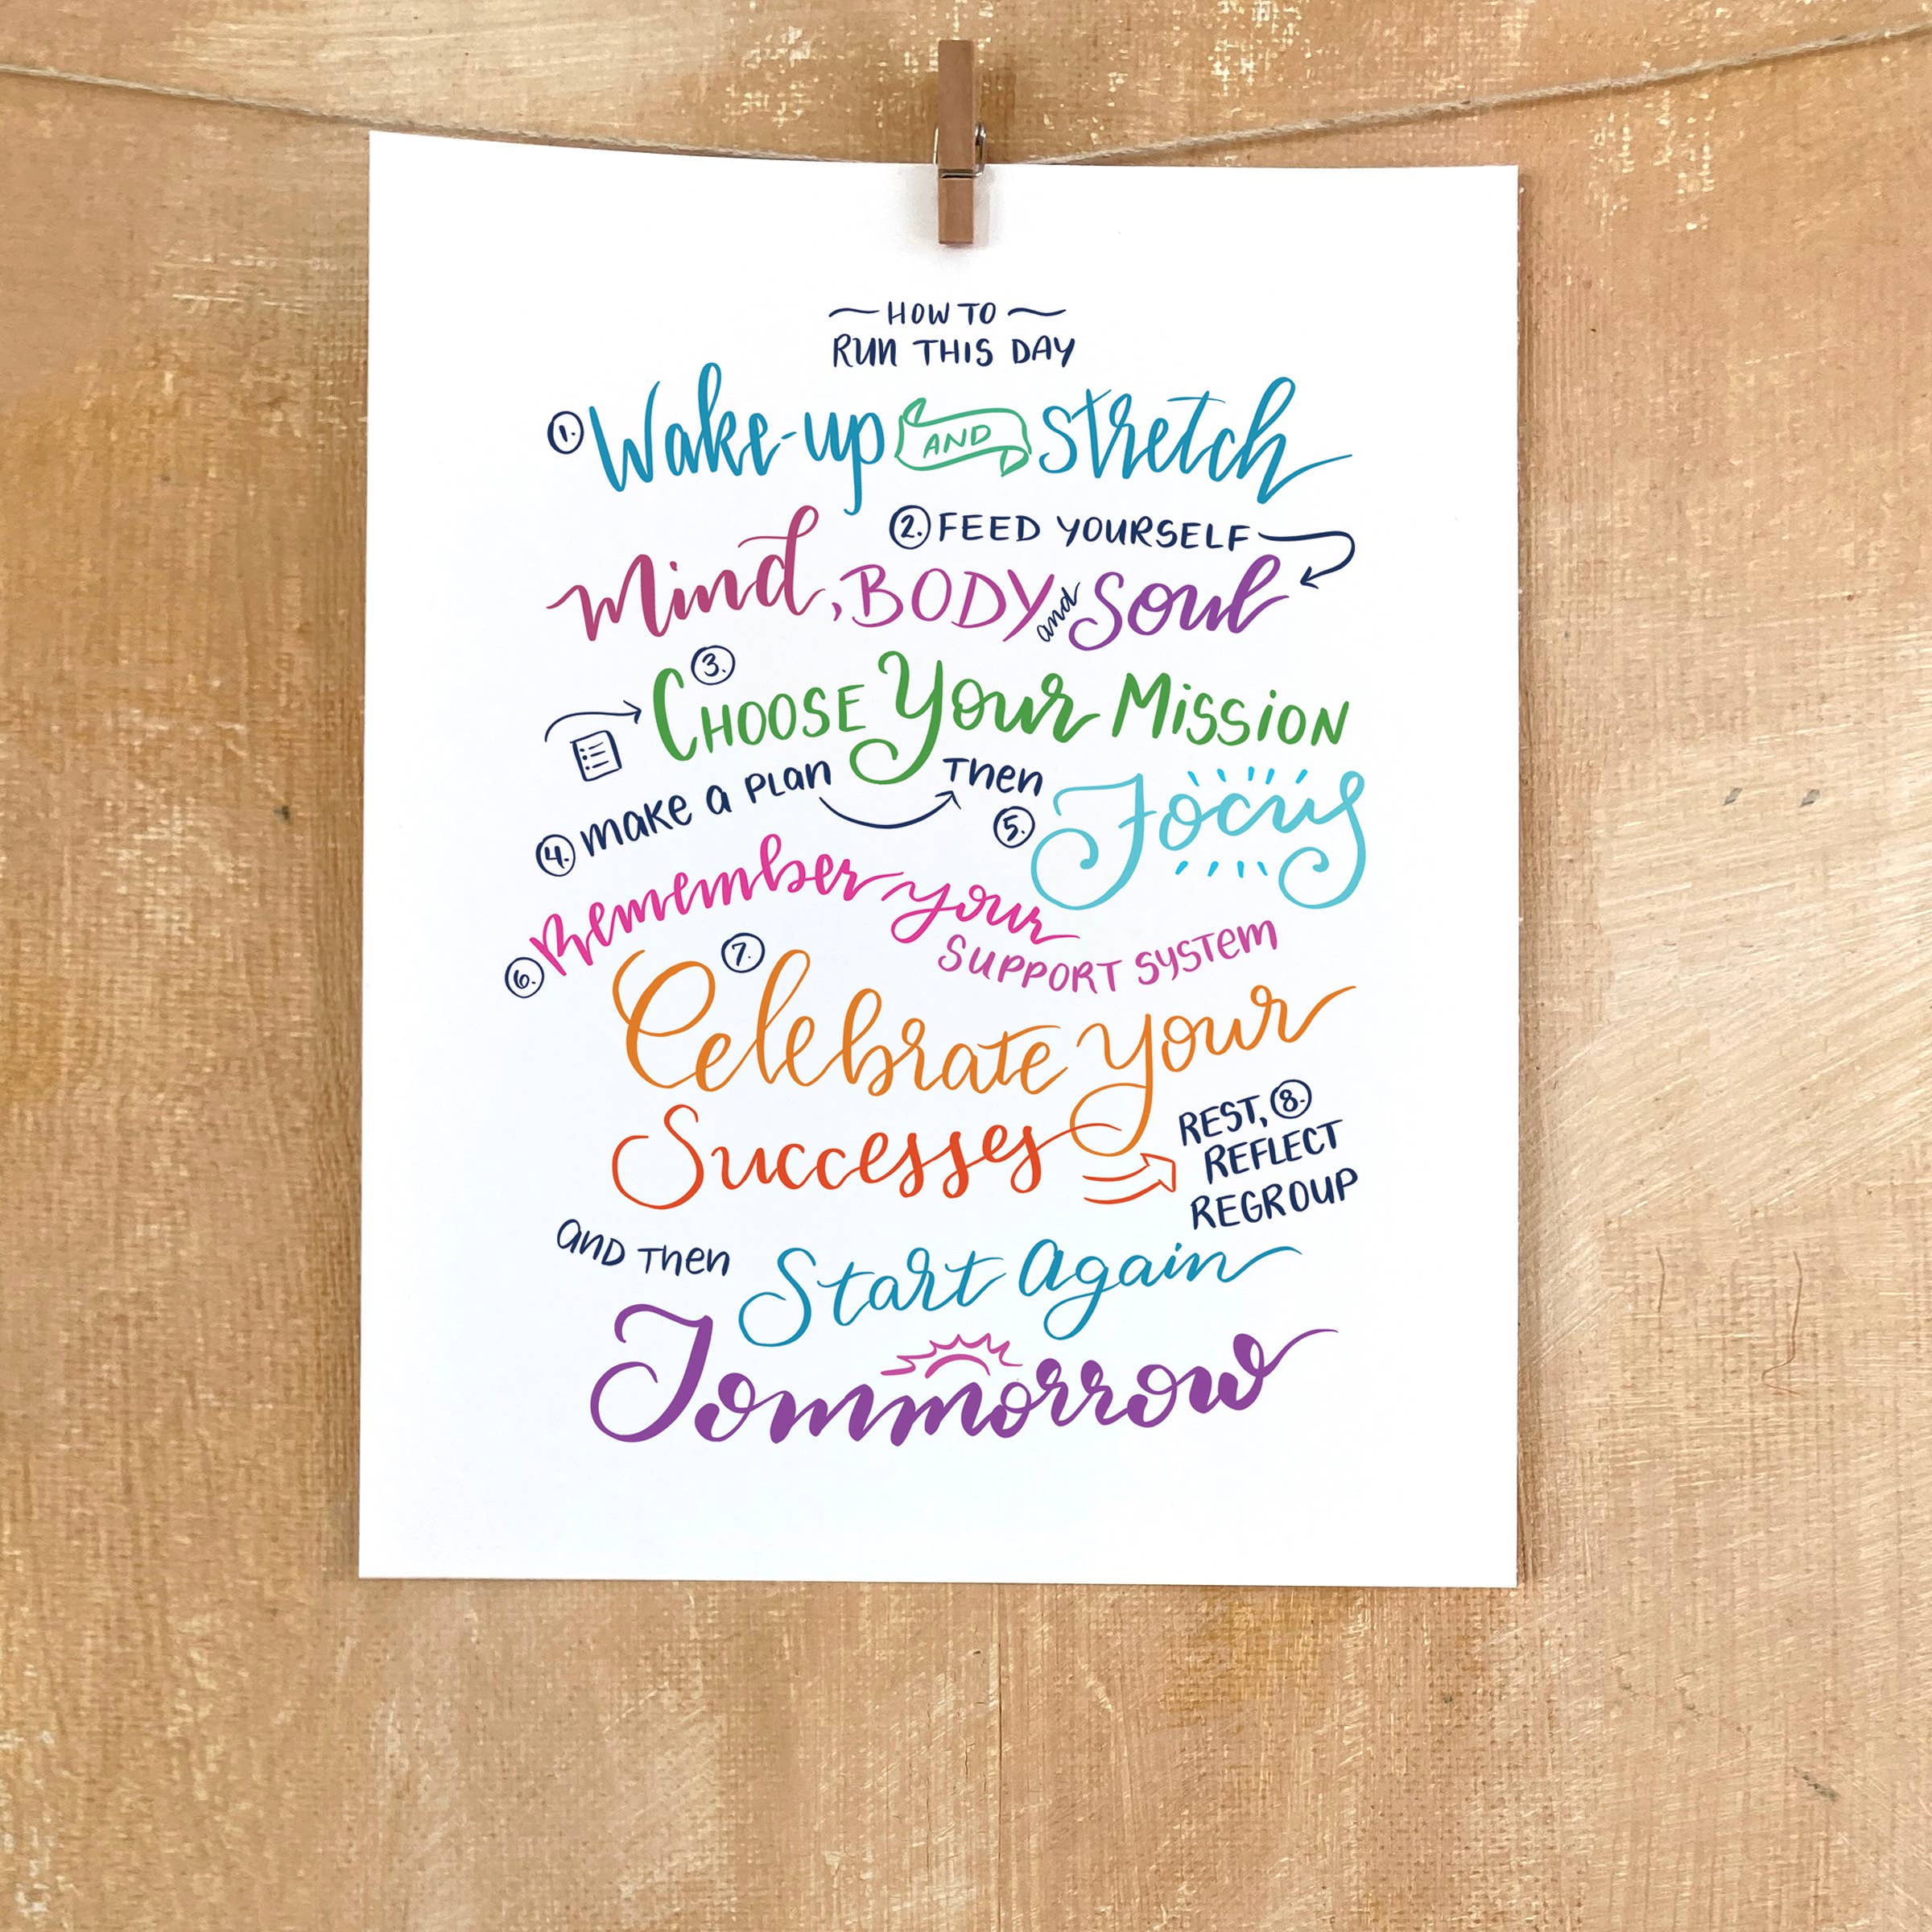 HOW TO
RUN THIS DAY
1. Wake-up AND Stretch
2. FEED YOURSELF
Mind, BODY and Soul
3.
CHOOSE Your MISSION
4. make a PLan Then
5. Focus
6. Remember your
SUPPORT SYSTEM
7.
Celebrate your
Successes
REST, 8.
REFLECT
REGROUP
and Then Start Again
Tommorrow